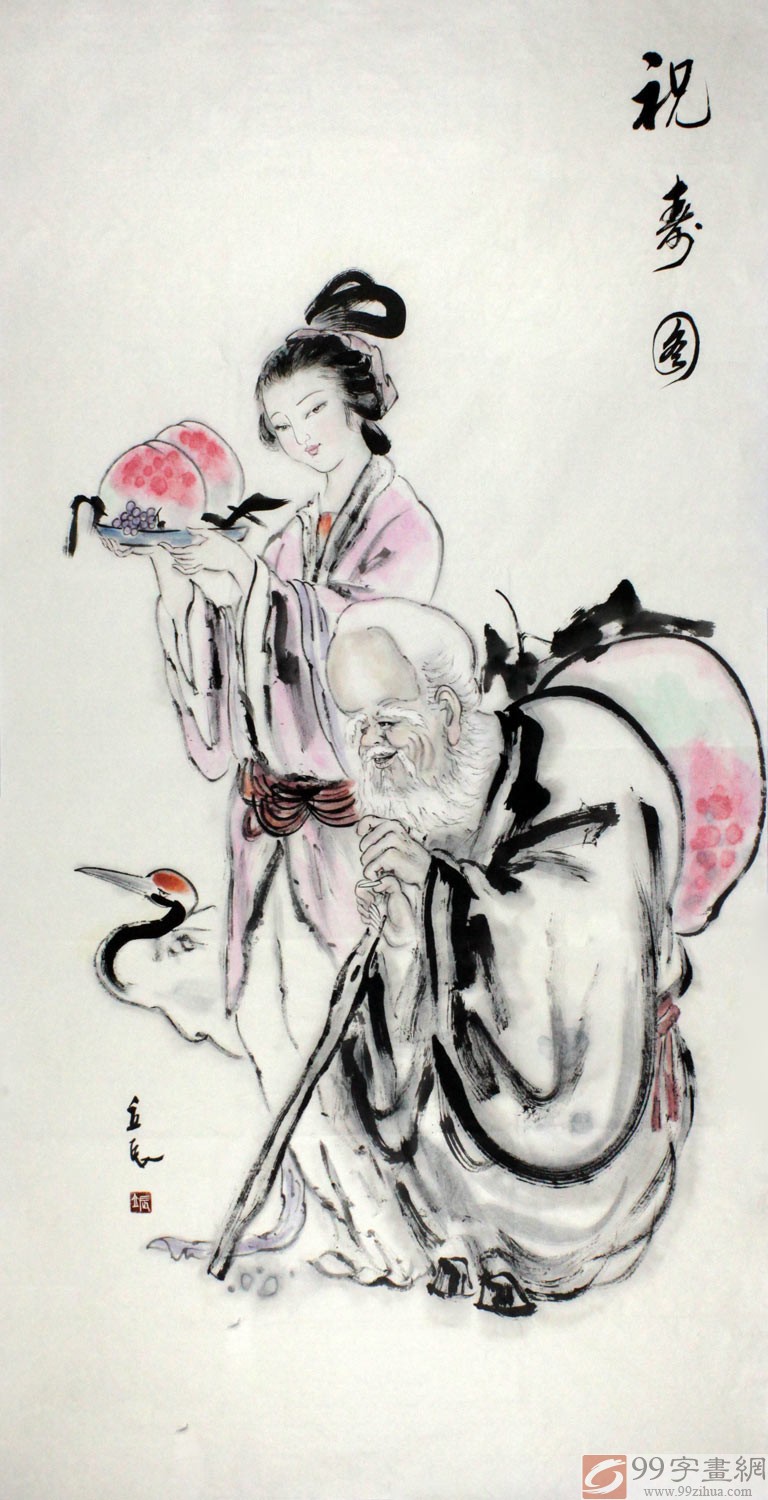 祝寿图
99字畫網
www.99zihua.com